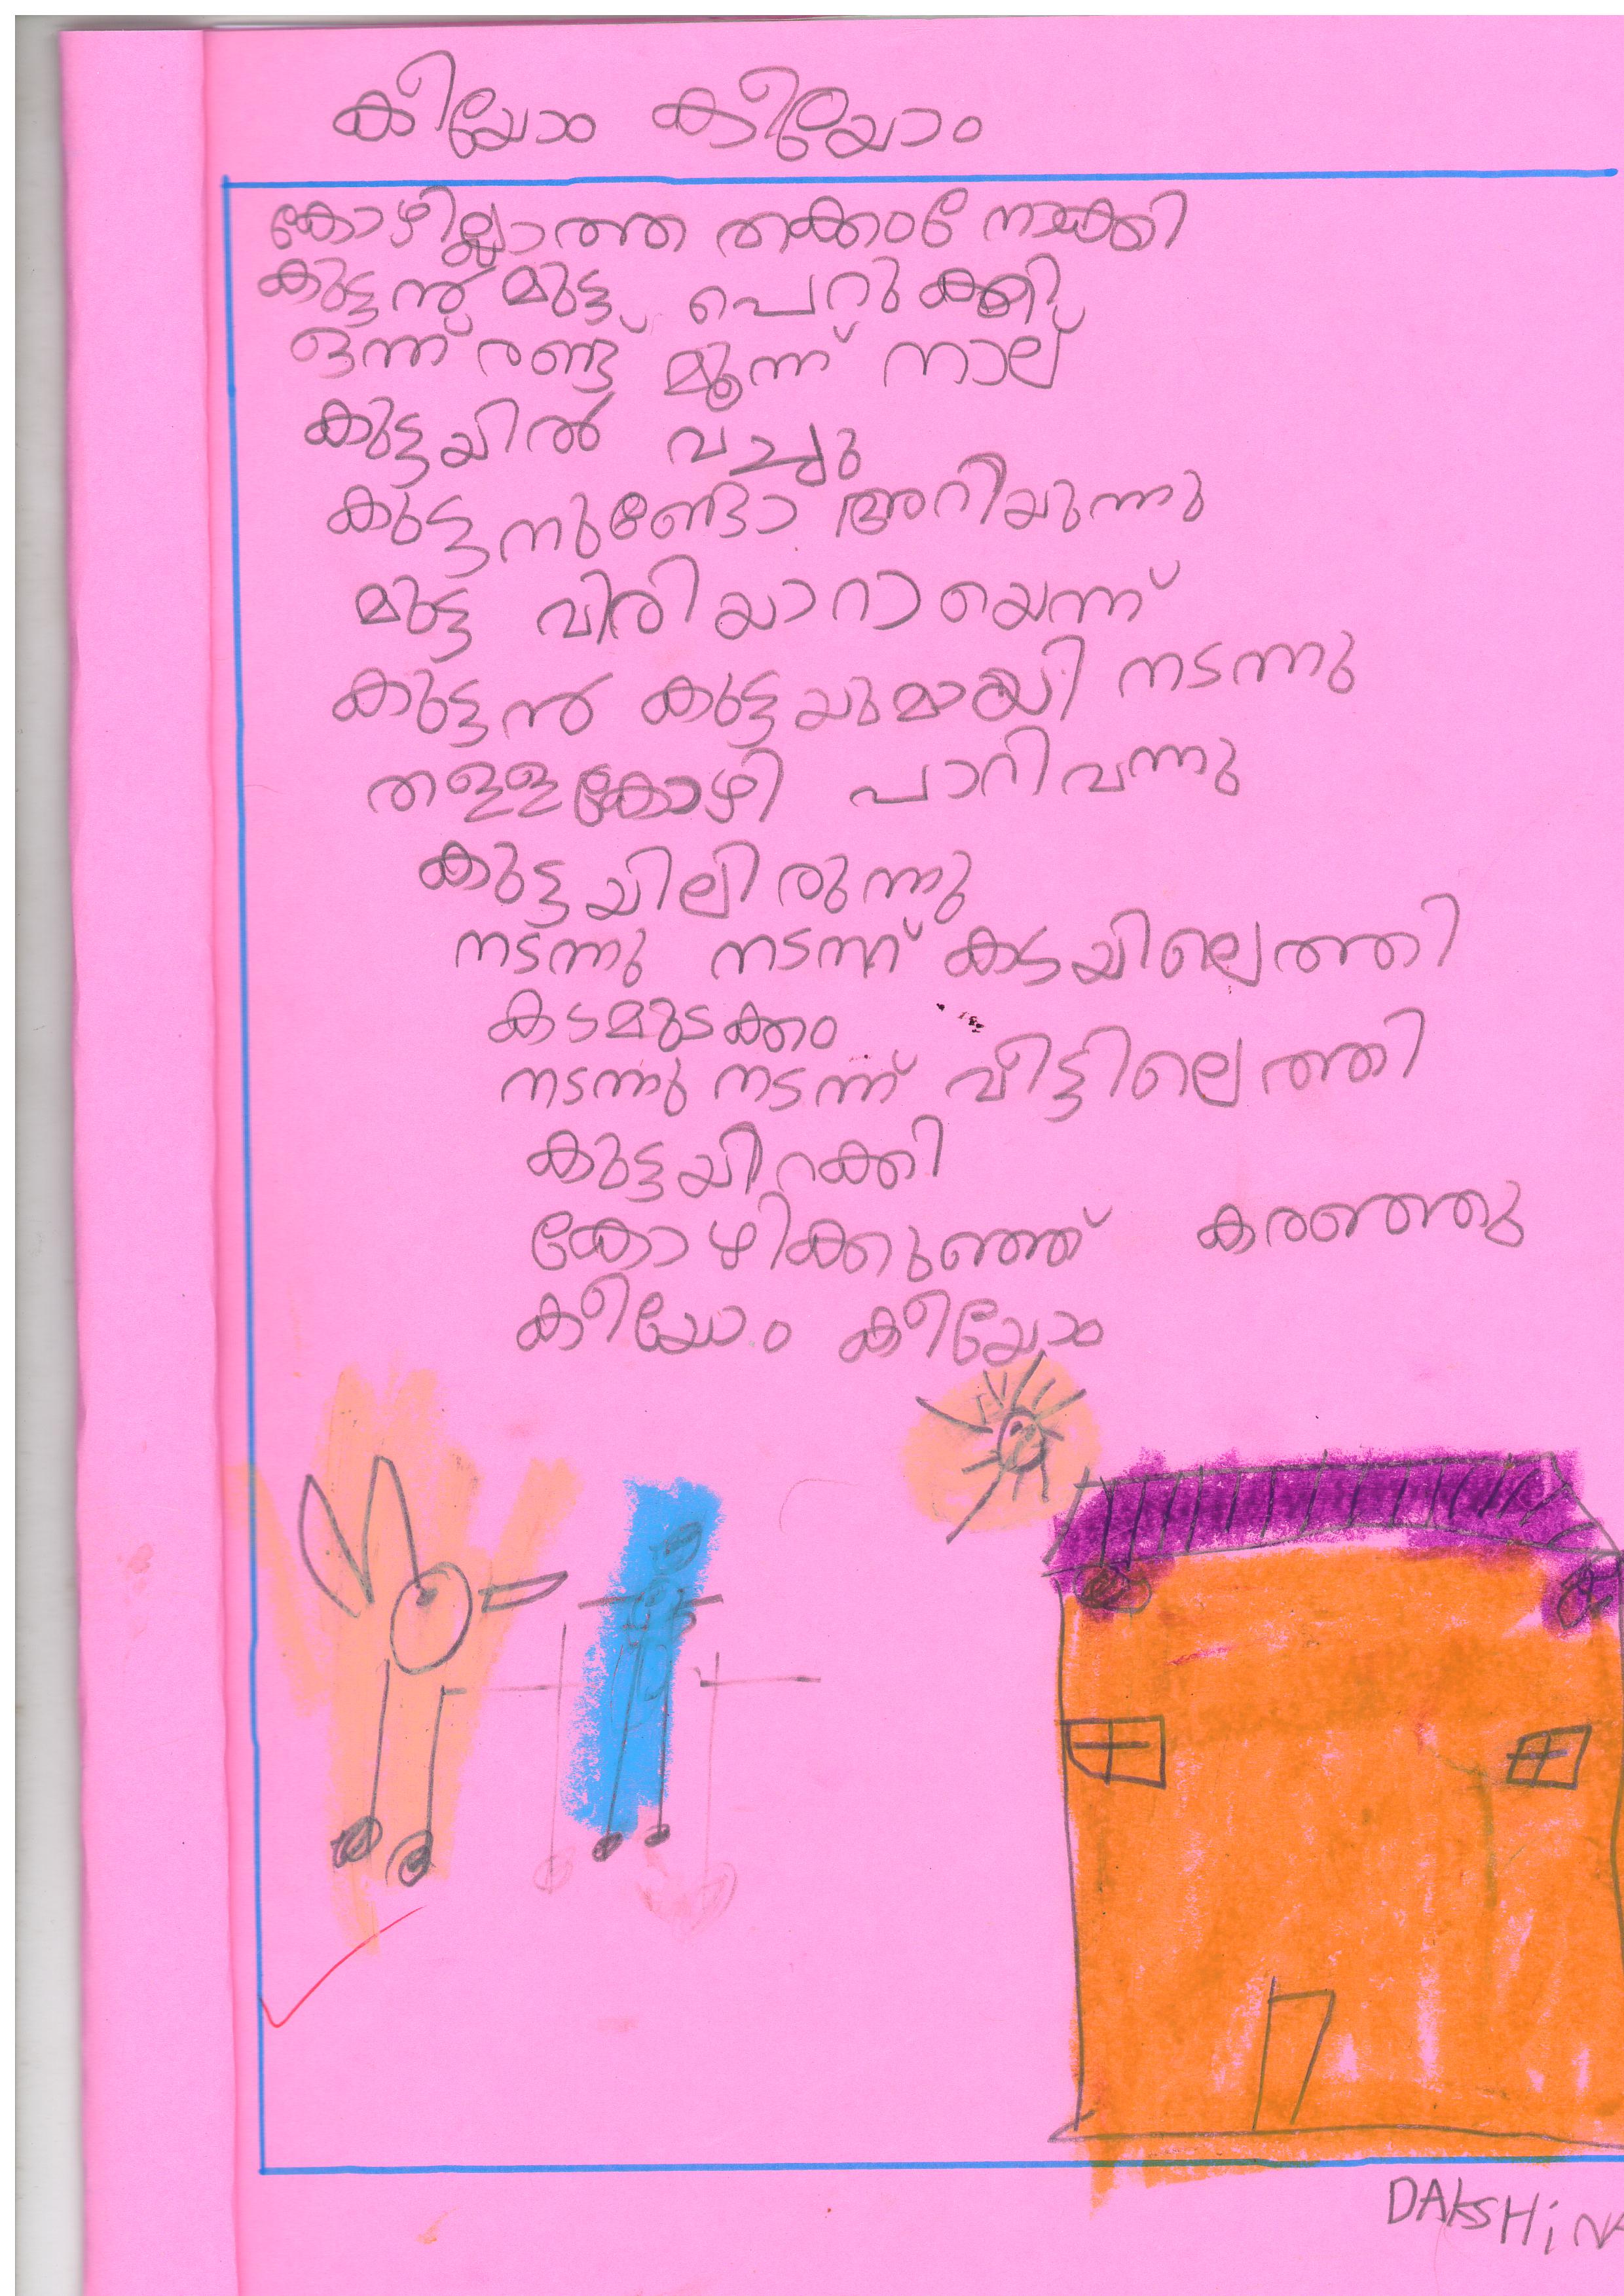 കീയോം കീയോം
കോഴില്ലാത്ത തക്കംനോക്കി
കുട്ടൻ മുട്ട പെറുക്കി
ഒന്ന് രണ്ട് മൂന്ന് നാല്
കുട്ടയിൽ വച്ചു
കുട്ടനുണ്ടോ അറിയുന്നു
മുട്ട വിരിയാറായെന്ന്
കുട്ടൻ കുട്ടയുമായി നടന്നു
തള്ളകോഴി പാറിവന്നു
കുട്ടയിലിരുന്നു
നടന്നു നടന്ന് കടയിലെത്തി
കടമുടക്കം
നടന്നു നടന്ന് വീട്ടിലെത്തി
കുട്ടയിറക്കി
കോഴിക്കുഞ്ഞ് കരഞ്ഞു
കീയോം കീയോം
DAKSHiNA